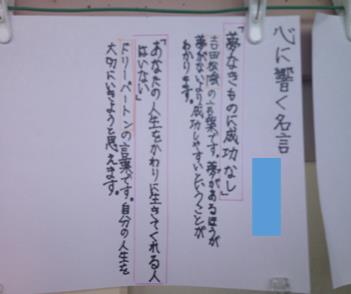 心に響く名言
「夢なきものに成功なし」
吉田松陰の言葉です。夢があるほうが
夢がないより成功しやすいということが
わかります。
「あなたの人生をかわりに生きてくれる人
はいない」
ドリーパートンの言葉です。自分の人生を
大切にいきようと思えます。